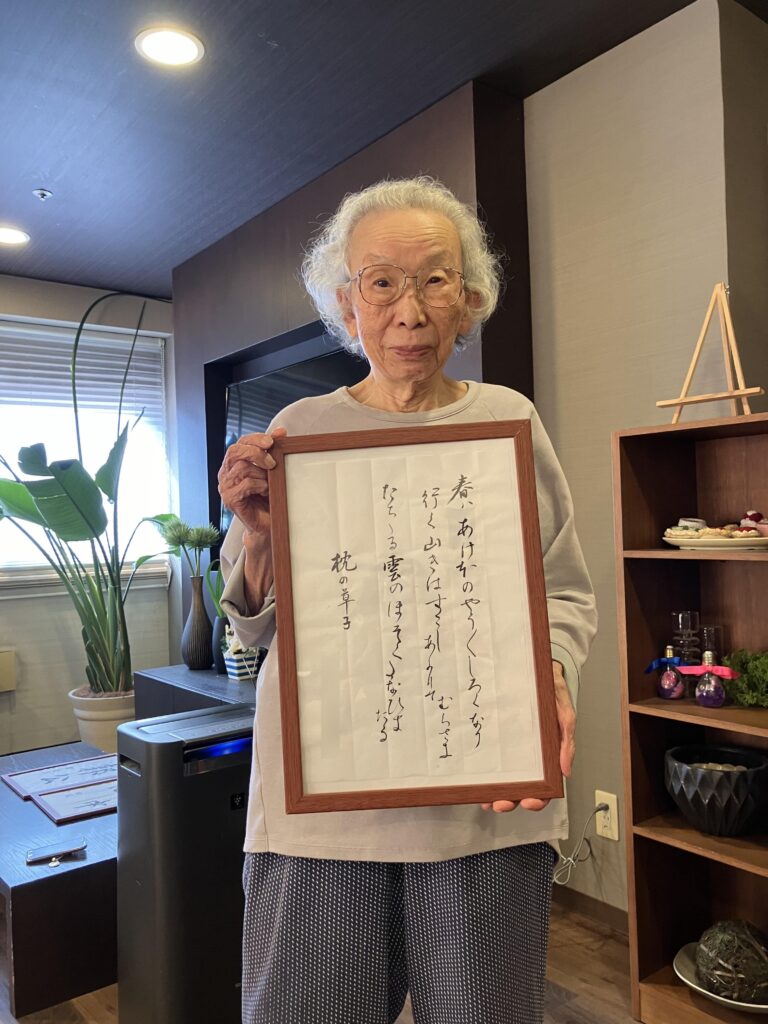 春ハあけ本のやう／＼しろくなり
行く山きはすこしあかりて
むらさき
だちたる雲のほそくたなひき
たる
枕の草子